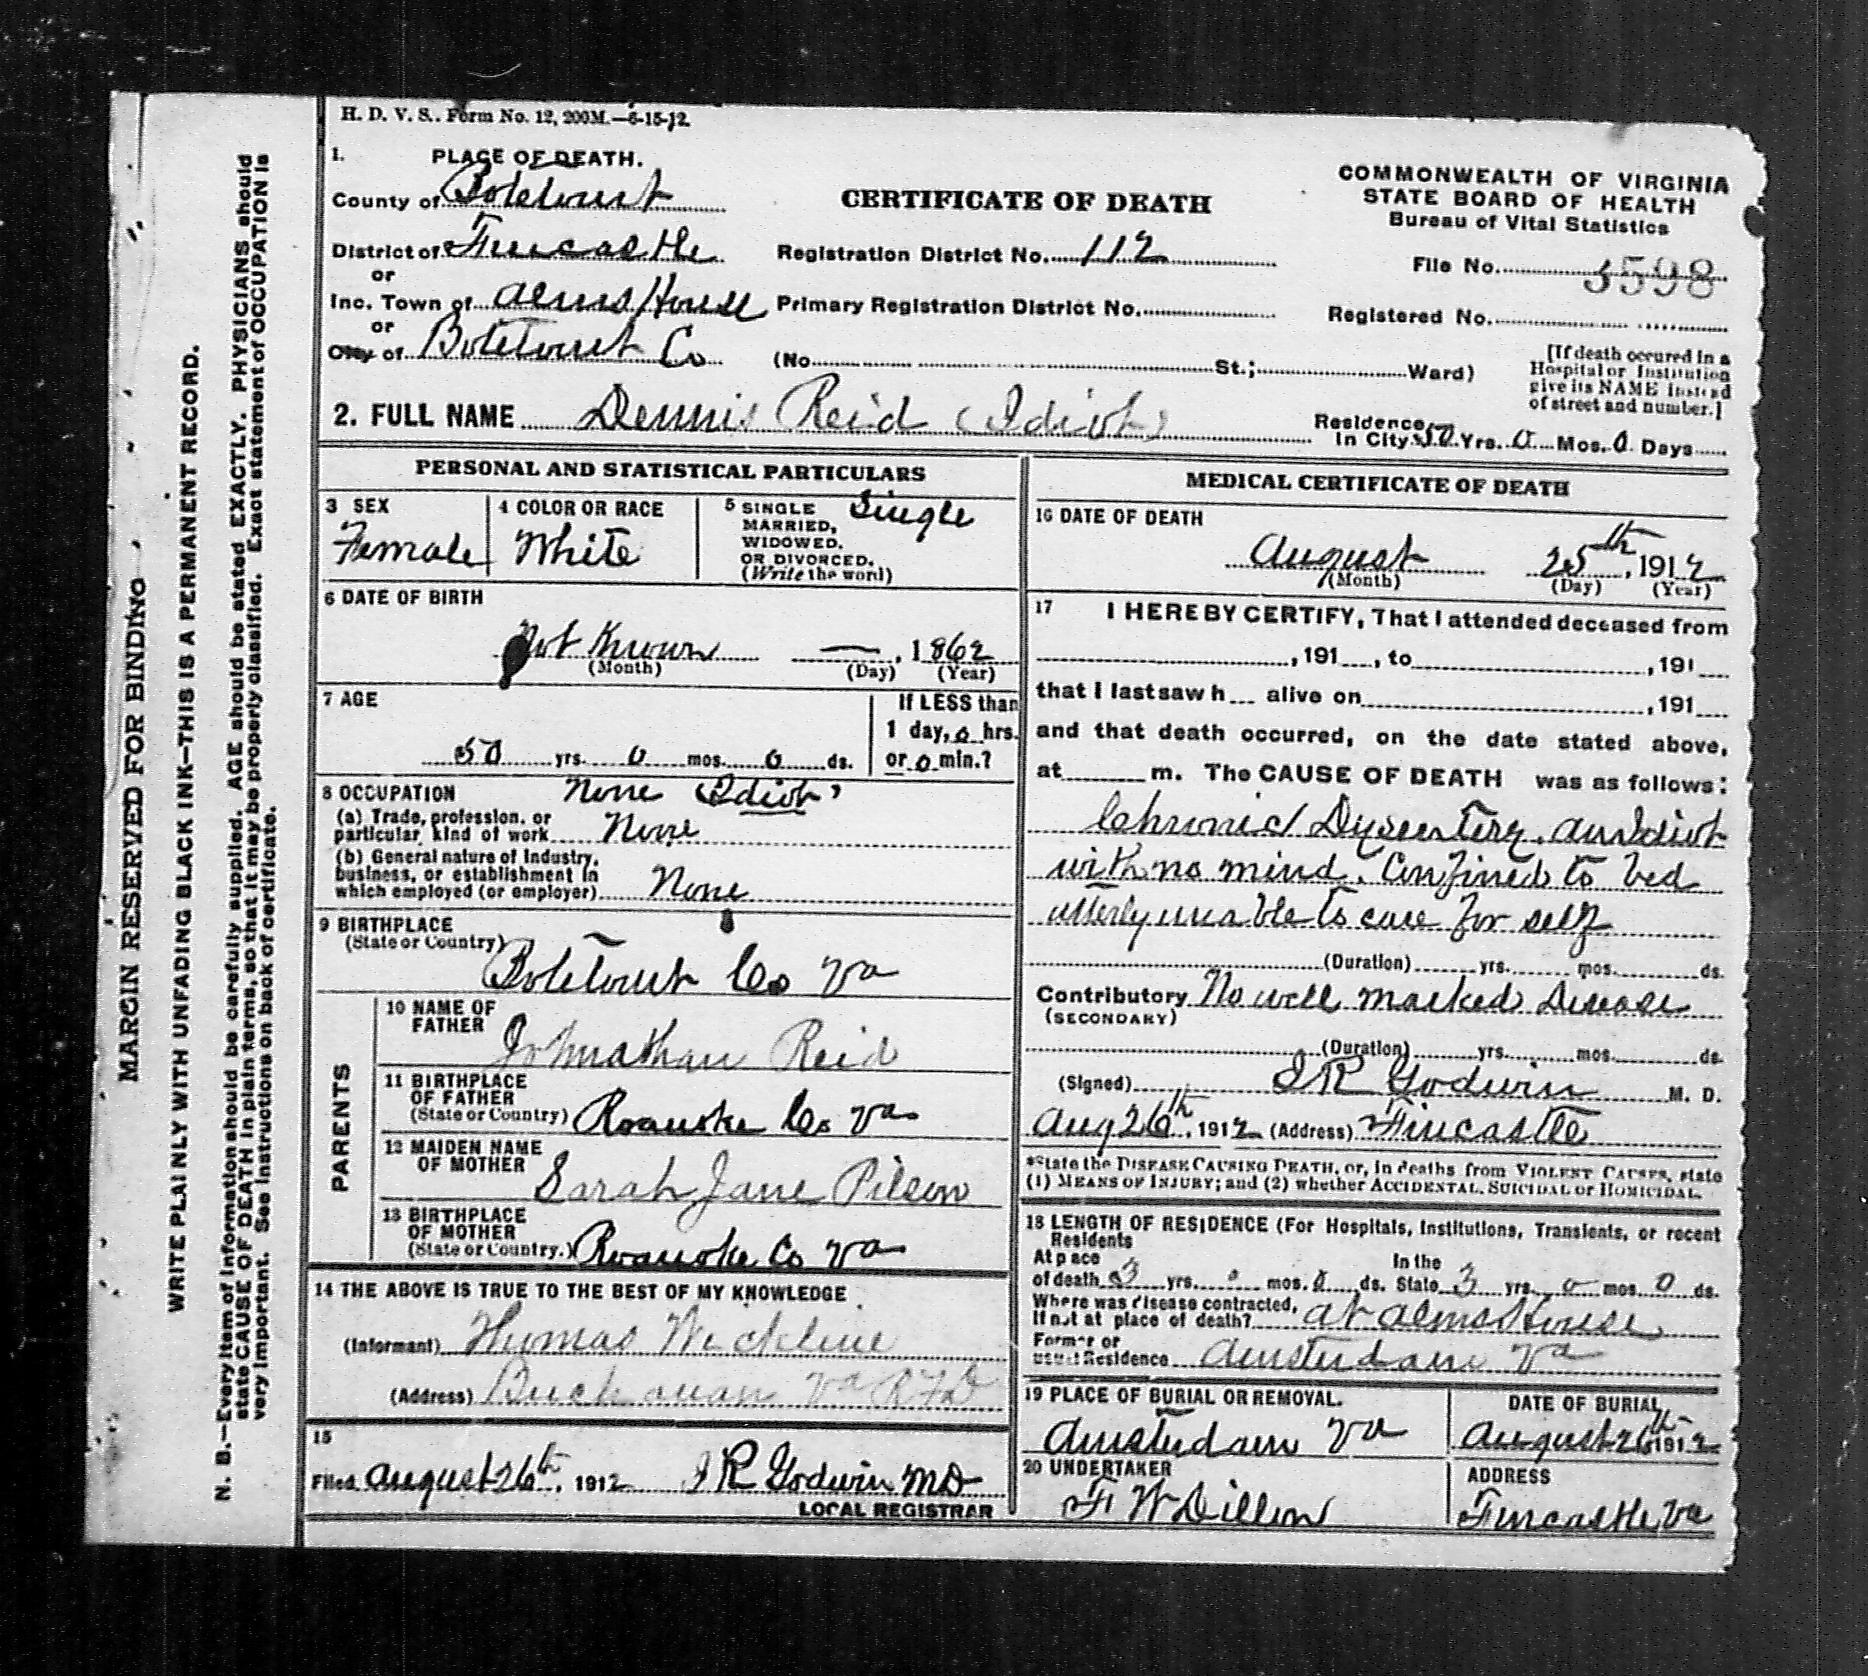 H. D. V. S.. Form No. 12, 200M.—6-15-12.
1. PLACE OF DEATH.
County of Botetourt
District of Fincastle
or
Inc. Town of Alms House
or
City of Botetourt Co
CERTIFICATE OF DEATH
Registration District No. 112
Primary Registration District No.
(No. St.; Ward)
COMMONWEALTH OF VIRGINIA
STATE BOARD OF HEALTH
Bureau of Vital Statistics
File No. 5598
Registered No.
[If death occured in a
Hospital or Institution
give its NAME instead
of street and number.]
2. FULL NAME Dennis Reid (Idiot)
Residence
In City 50 Yrs. 0 Mos. 0 Days
PERSONAL AND STATISTICAL PARTICULARS
3 SEX
Female
4 COLOR OR RACE
White
5 SINGLE
MARRIED,
WIDOWED.
OR DIVORCED.
(Write the word)
Single
6 DATE OF BIRTH
Not Known — , 1862
(Month) (Day) (Year)
7 AGE
50 yrs. 0 mos. 0 ds.
If LESS than
1 day, 0 hrs.
or 0 min.?
8 OCCUPATION None (Idiot)
(a) Trade, profession, or
particular kind of work None
(b) General nature of Industry,
business, or establishment in
which employed (or employer) None
9 BIRTHPLACE
(State or Country)
Botetourt Co Va
PARENTS
10 NAME OF
FATHER
Johnathan Reid
11 BIRTHPLACE
OF FATHER
(State or Country) Roanoke Co Va
12 MAIDEN NAME
OF MOTHER
Sarah Jane Pilson
13 BIRTHPLACE
OF MOTHER
(State or Country.) Roanoke Co Va
14 THE ABOVE IS TRUE TO THE BEST OF MY KNOWLEDGE
(Informant) Thomas Wickline
(Address) Buchanan Va RFD
15
Filed August 26th, 1912 J R Godwin MD
LOCAL REGISTRAR
MEDICAL CERTIFICATE OF DEATH
16 DATE OF DEATH
August 25th, 1912
(Month) (Day) (Year)
17 I HEREBY CERTIFY, That I attended deceased from
, 191 , to , 191
that I last saw h alive on , 191
and that death occurred, on the date stated above,
at m. The CAUSE OF DEATH was as follows:
Chronic Dysentery. an Idiot
with no mind. Confined to bed
utterly unable to care for self
(Duration) yrs. mos. ds.
Contributory No well marked Disease
(SECONDARY)
(Duration) yrs. mos. ds.
(Signed) J R Godwin M. D.
Aug 26th, 1912 (Address) Fincastle
*State the DISEASE CAUSING DEATH, or, in deaths from VIOLENT CAUSES, state
(1) MEANS OF INJURY; and (2) whether ACCIDENTAL, SUICIDAL or HOMICIDAL.
18 LENGTH OF RESIDENCE (For Hospitals, Institutions, Transients, or recent
Residents
At place
of death 3 yrs. 0 mos. 0 ds.
In the
State 3 yrs 0 mos 0 ds.
Where was disease contracted,
If not at place of death? at Alms House
Former or
usual Residence Amsterdam Va
19 PLACE OF BURIAL OR REMOVAL.
Amsterdam Va
DATE OF BURIAL
August 26th 1912
20 UNDERTAKER
F W Dillon
ADDRESS
Fincastle Va
MARGIN RESERVED FOR BINDING
WRITE PLAINLY WITH UNFADING BLACK INK—THIS IS A PERMANENT RECORD.
N. B.—Every item of information should be carefully supplied. AGE should be stated EXACTLY. PHYSICIANS should
state CAUSE OF DEATH in plain terms, so that it may be properly classified. Exact statement of OCCUPATION is
very important. See instructions on back of certificate.